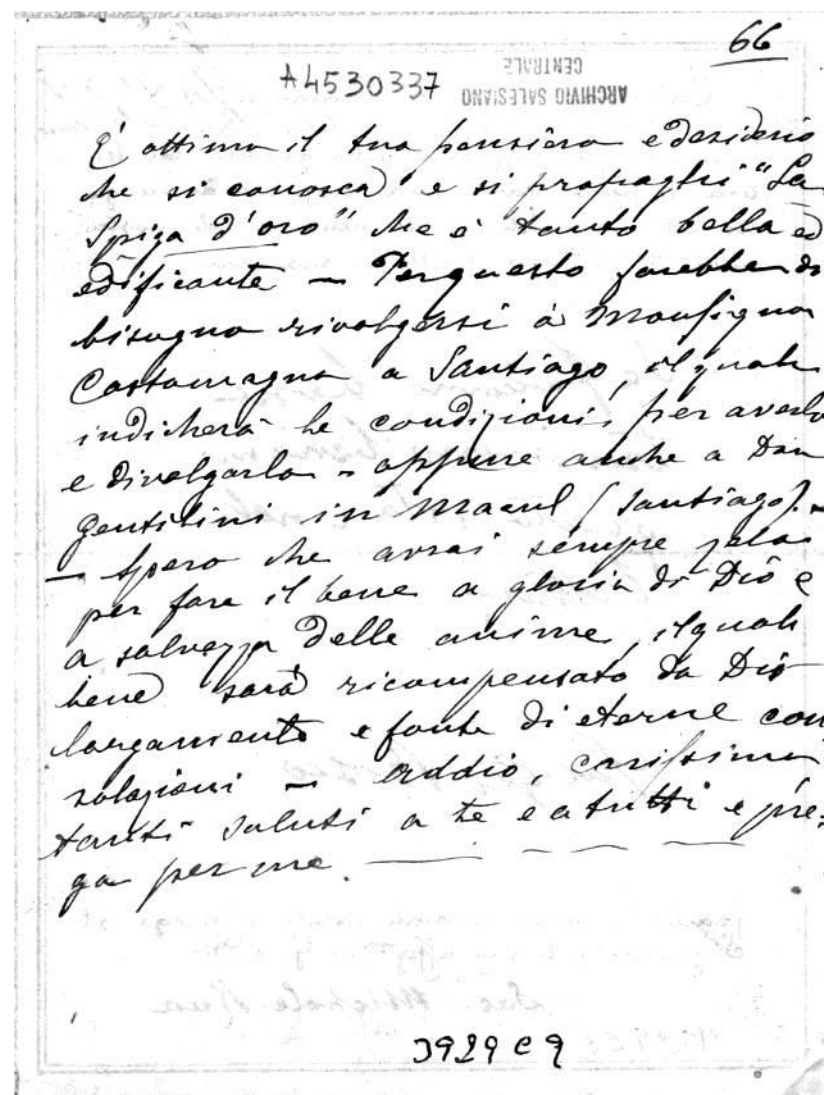 66
A4530337
ARCHIVIO SALESIANO
CENTRALE
E' ottimo il tuo pensiero e desiderio
che si conosca e si propaghi "La
Spiga d'oro" che è tanto bella ed
edificante — Per questo sarebbe di
bisogno rivolgersi a Monsignor
Costamagna a Santiago, il quale
indicherà le condizioni per averlo
e divolgarlo - oppure anche a Don
Gentilini in Macul (Santiago). -
— Spero che avrai sempre zelo
per fare il bene a gloria di Dio e
a salvezza delle anime, il quale
bene sarà ricompensato da Dio
largamente e fonte di eterne con
solazioni — Addio, carissimo
tanti saluti a te e a tutti e pre-
ga per me.
3929 C 9